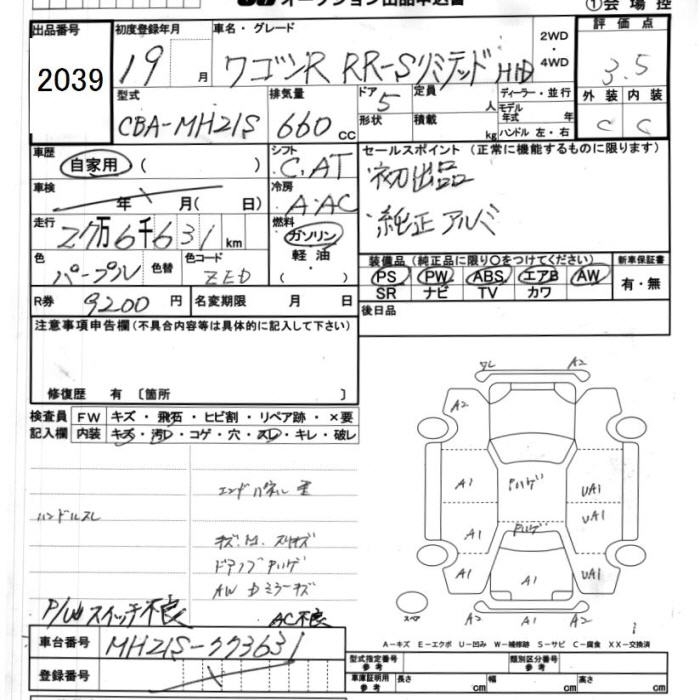 オークション出品申込書 ①会場控
出品番号 初度登録年月 車名・グレード 2WD・4WD 評価点
2039 19 月 ワゴンR RR-Sリミテッド HID 3.5
型式 排気量 ドア 定員 ディーラー・並行 外装 内装
CBA-MH21S 660 cc 5 人 モデル年式 年 C C
形状 積載 kg ハンドル 左・右
車歴 シフト セールスポイント (正常に機能するものに限ります)
自家用 ( ) C.AT 初出品
車検 冷房
年 月( 日) A.AC 純正アルミ
走行 燃料
27万6千631 km ガソリン
軽油
( )
色 色替 色コード 装備品(純正品に限り〇をつけてください) 新車保証書
パープル ZED PS PW ABS エアB AW 有・無
SR ナビ TV カワ
R券 9200 円 名変期限 月 日 後日品
注意事項申告欄(不具合内容等は具体的に記入して下さい)
修復歴 有 〔箇所 〕
検査員 FW キズ・飛石・ヒビ割・リペア跡・×要
記入欄 内装 キズ・汚レ・コゲ・穴・スレ・キレ・破レ
ハンドルスレ
P/Wスイッチ不良 AC不良
A2
A2
A1 UA1
A1 UA1
A1 A1 UA1
A1 A2
A−キズ E−エクボ U−凹み W−補修跡 S−サビ C−腐食 XX−交換済
車台番号 MH21S-773631
登録番号
型式指定番号 参考 類別区分番号 参考
車庫証明用 参考 長さ cm 幅 cm 高さ cm